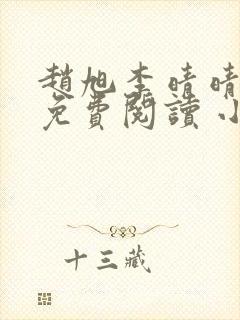 趙旭李晴晴
免費閱讀小
十三藏